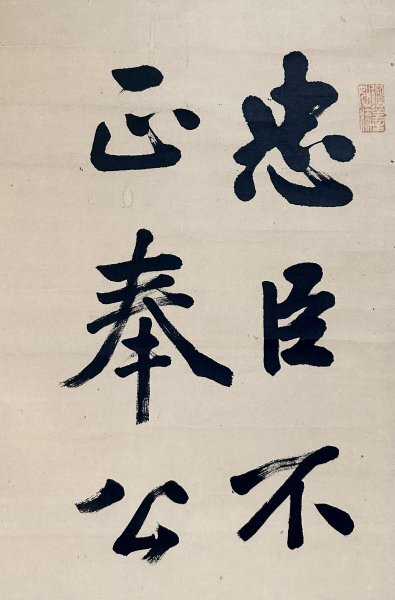 忠臣不
正奉公